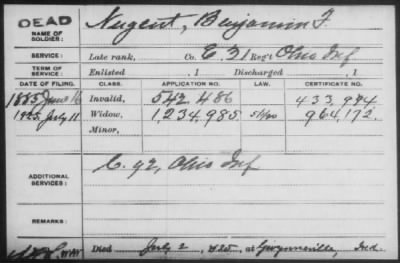 DEAD
NAME OF SOLDIER: Nugent, Benjamin F.
SERVICE: Late rank, Co. E. 31 Reg't Ohio Inf
TERM OF SERVICE: Enlisted , 1 Discharged , 1
DATE OF FILING. CLASS. APPLICATION NO. LAW. CERTIFICATE NO.
1885 June 16 Invalid, 542.486 433,994
1925, July 11 Widow, 1,234,985 5/1/20 964,172.
Minor,
ADDITIONAL SERVICES: C. 92, Ohio Inf
REMARKS:
Died July 2, 1925, at Gwynneville, Ind.